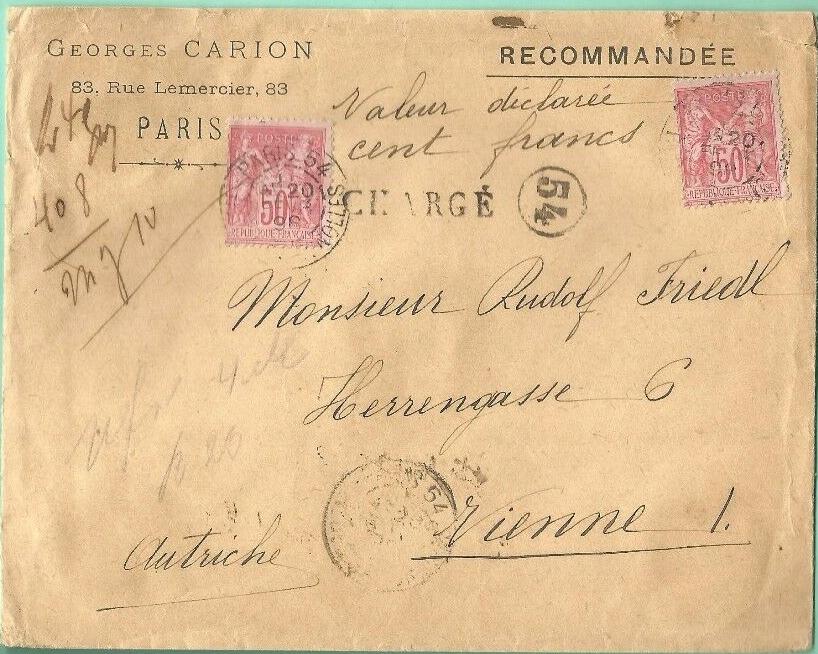 GEORGES CARION
83. Rue Lemercier, 83
PARIS
RECOMMANDÉE
Valeur déclarée
cent francs
POSTE
50
REPUBLIQUE FRANÇAISE
PARIS 54
20
96
NOLLES
POSTE
50
REPUBLIQUE FRANÇAISE
20
CHARGÉ
54
40 8
Monsieur Rudolf Friedl
Herrengasse 6
Vienne 1.
Autriche
54